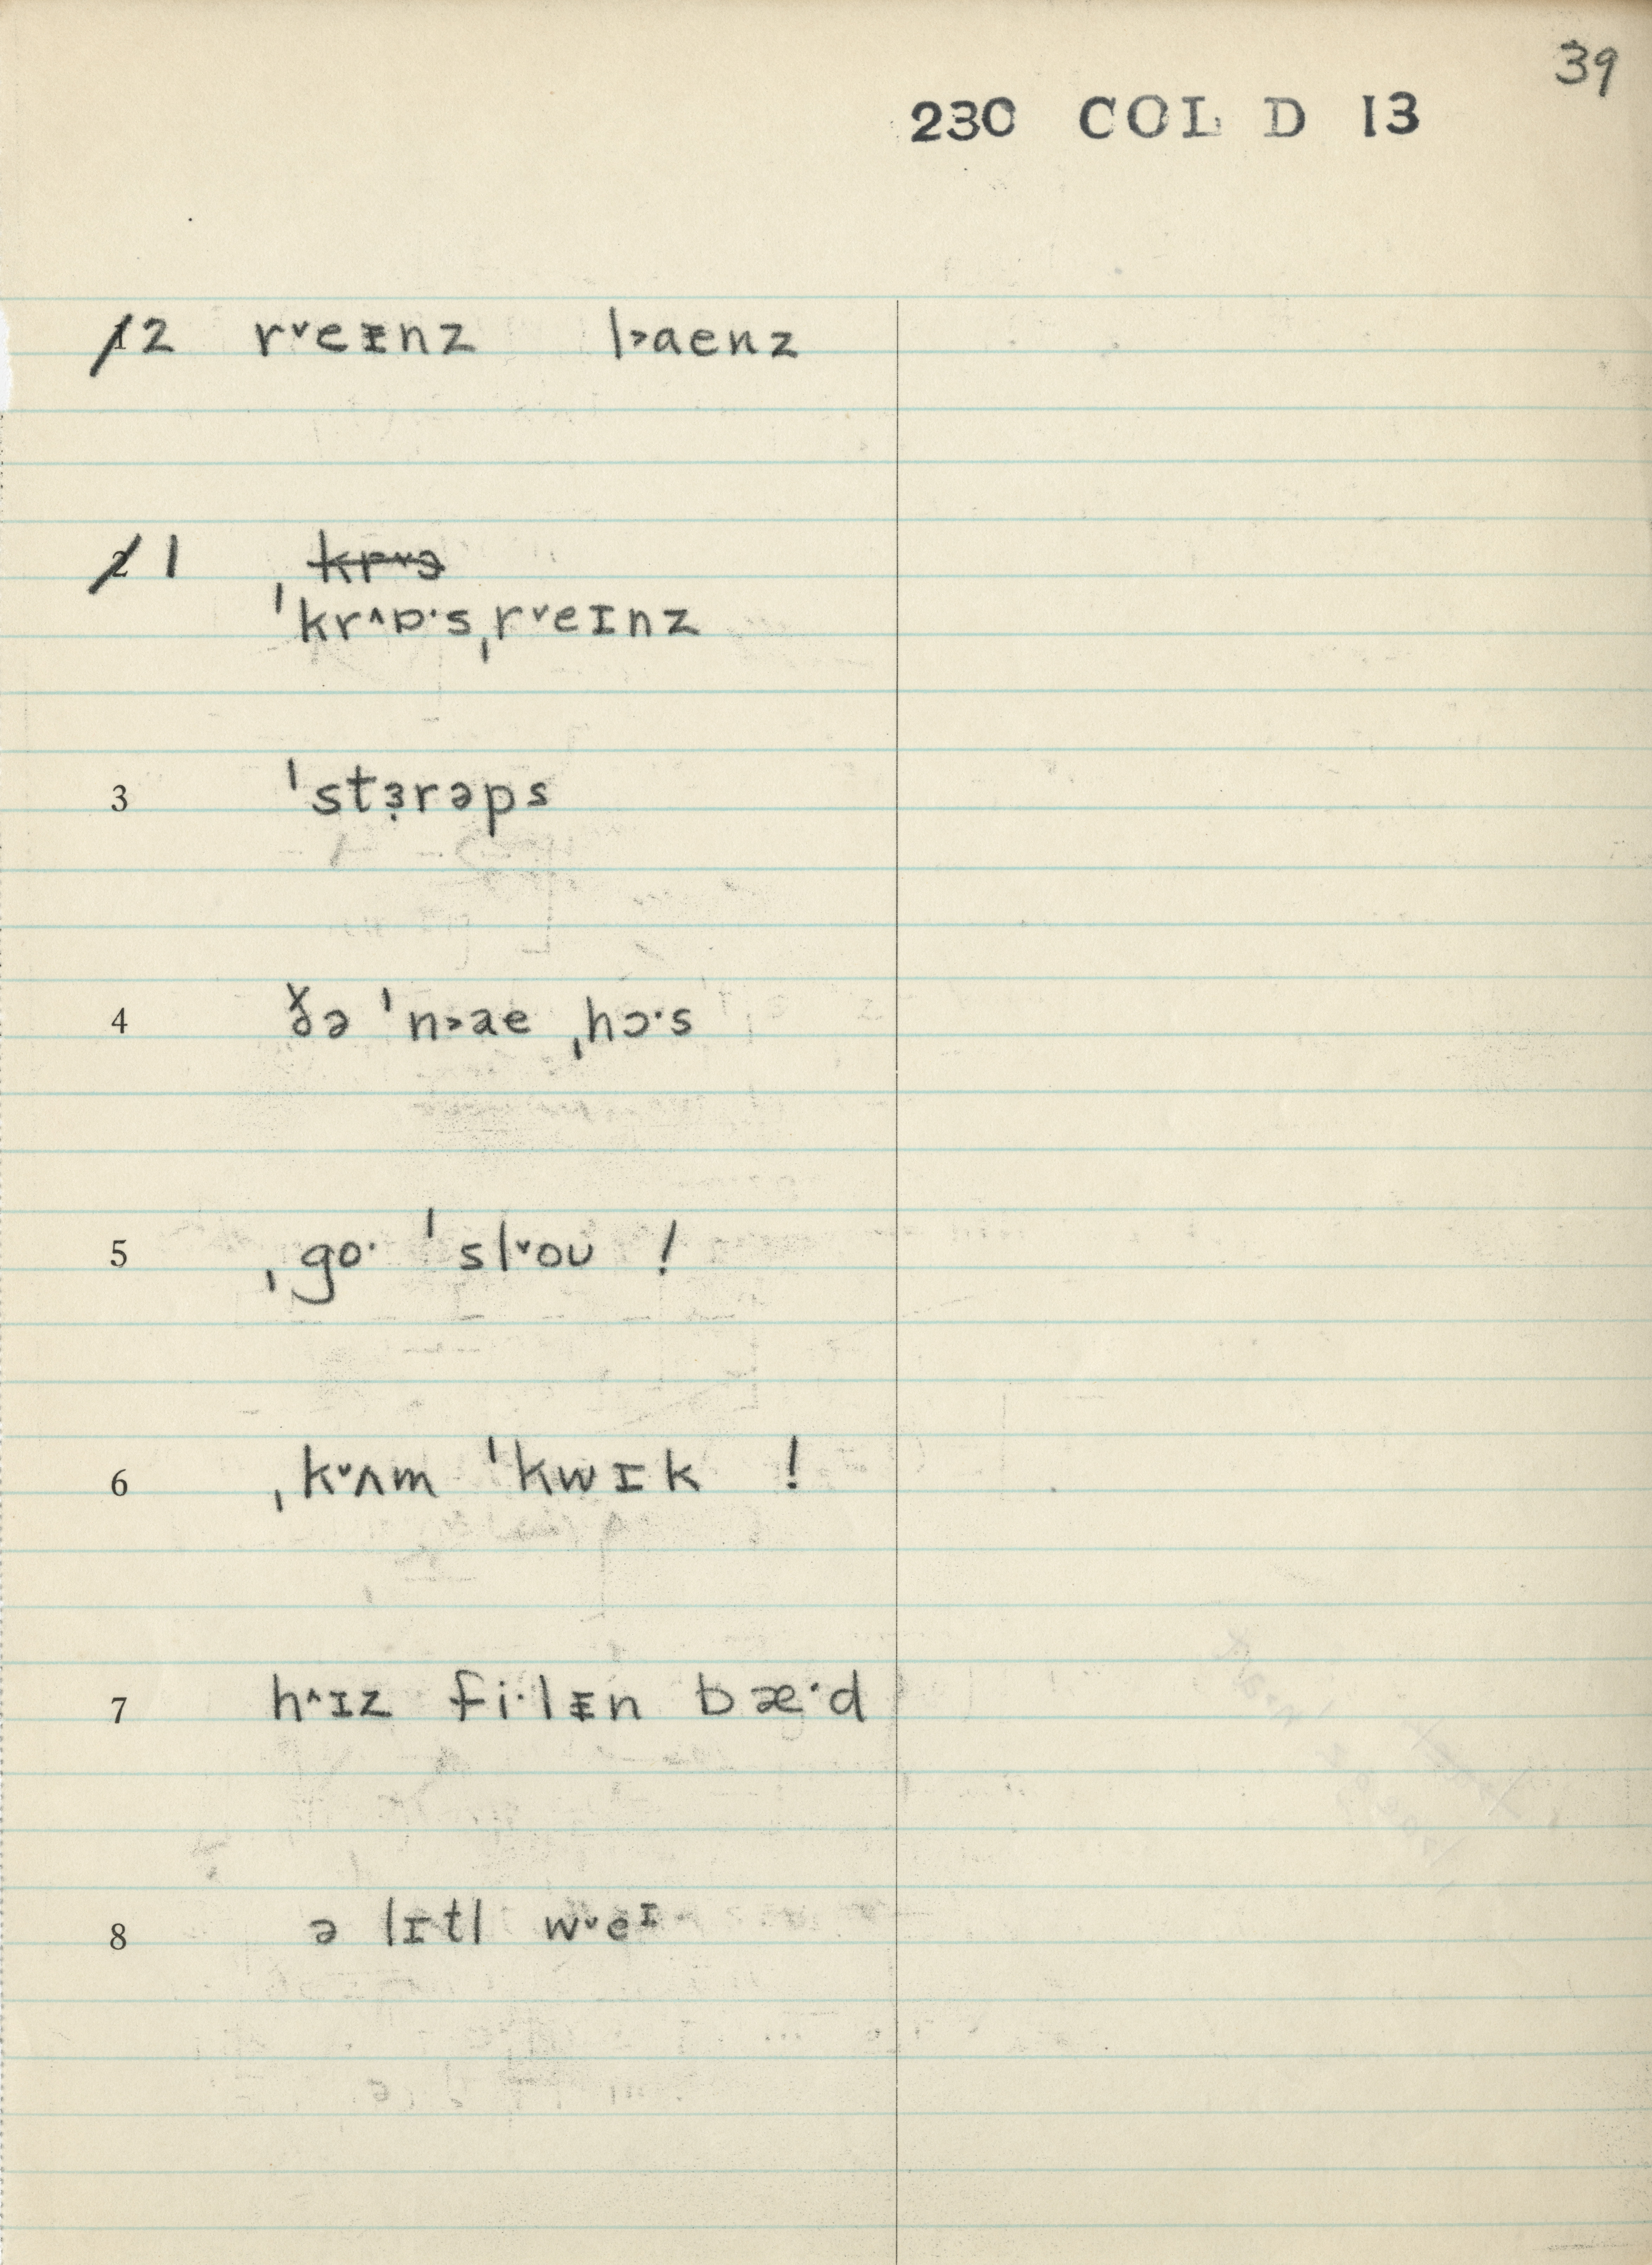 39
230 COL D 13
1̸2 r˅eᵻnz l˃aenz
2̸1 ˌk̶r̶˅̶ɔ̶
ˈkr˄ɒ·sˌr˅eɪnz
3 ˈstɜ̣rəps
4 ðə ˈn˃ae ˌhɔ·s
5 ˌgo· ˈsl˅oʊ !
6 ˌk˅ʌm ˈkwɪk !
7 h˄ɪz fi·lᵻn bæ·d
8 ə lɪtl w˅eᶦ